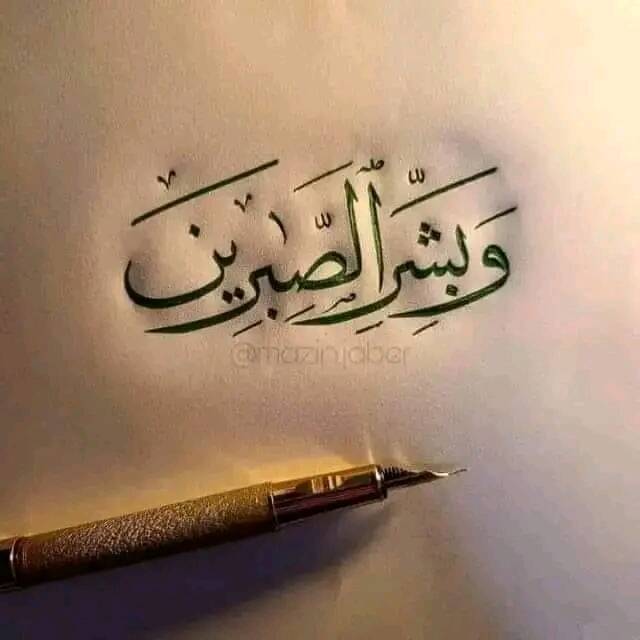 وَبَشِّرِ ٱلصَّٰبِرِينَ
@mazinjaber